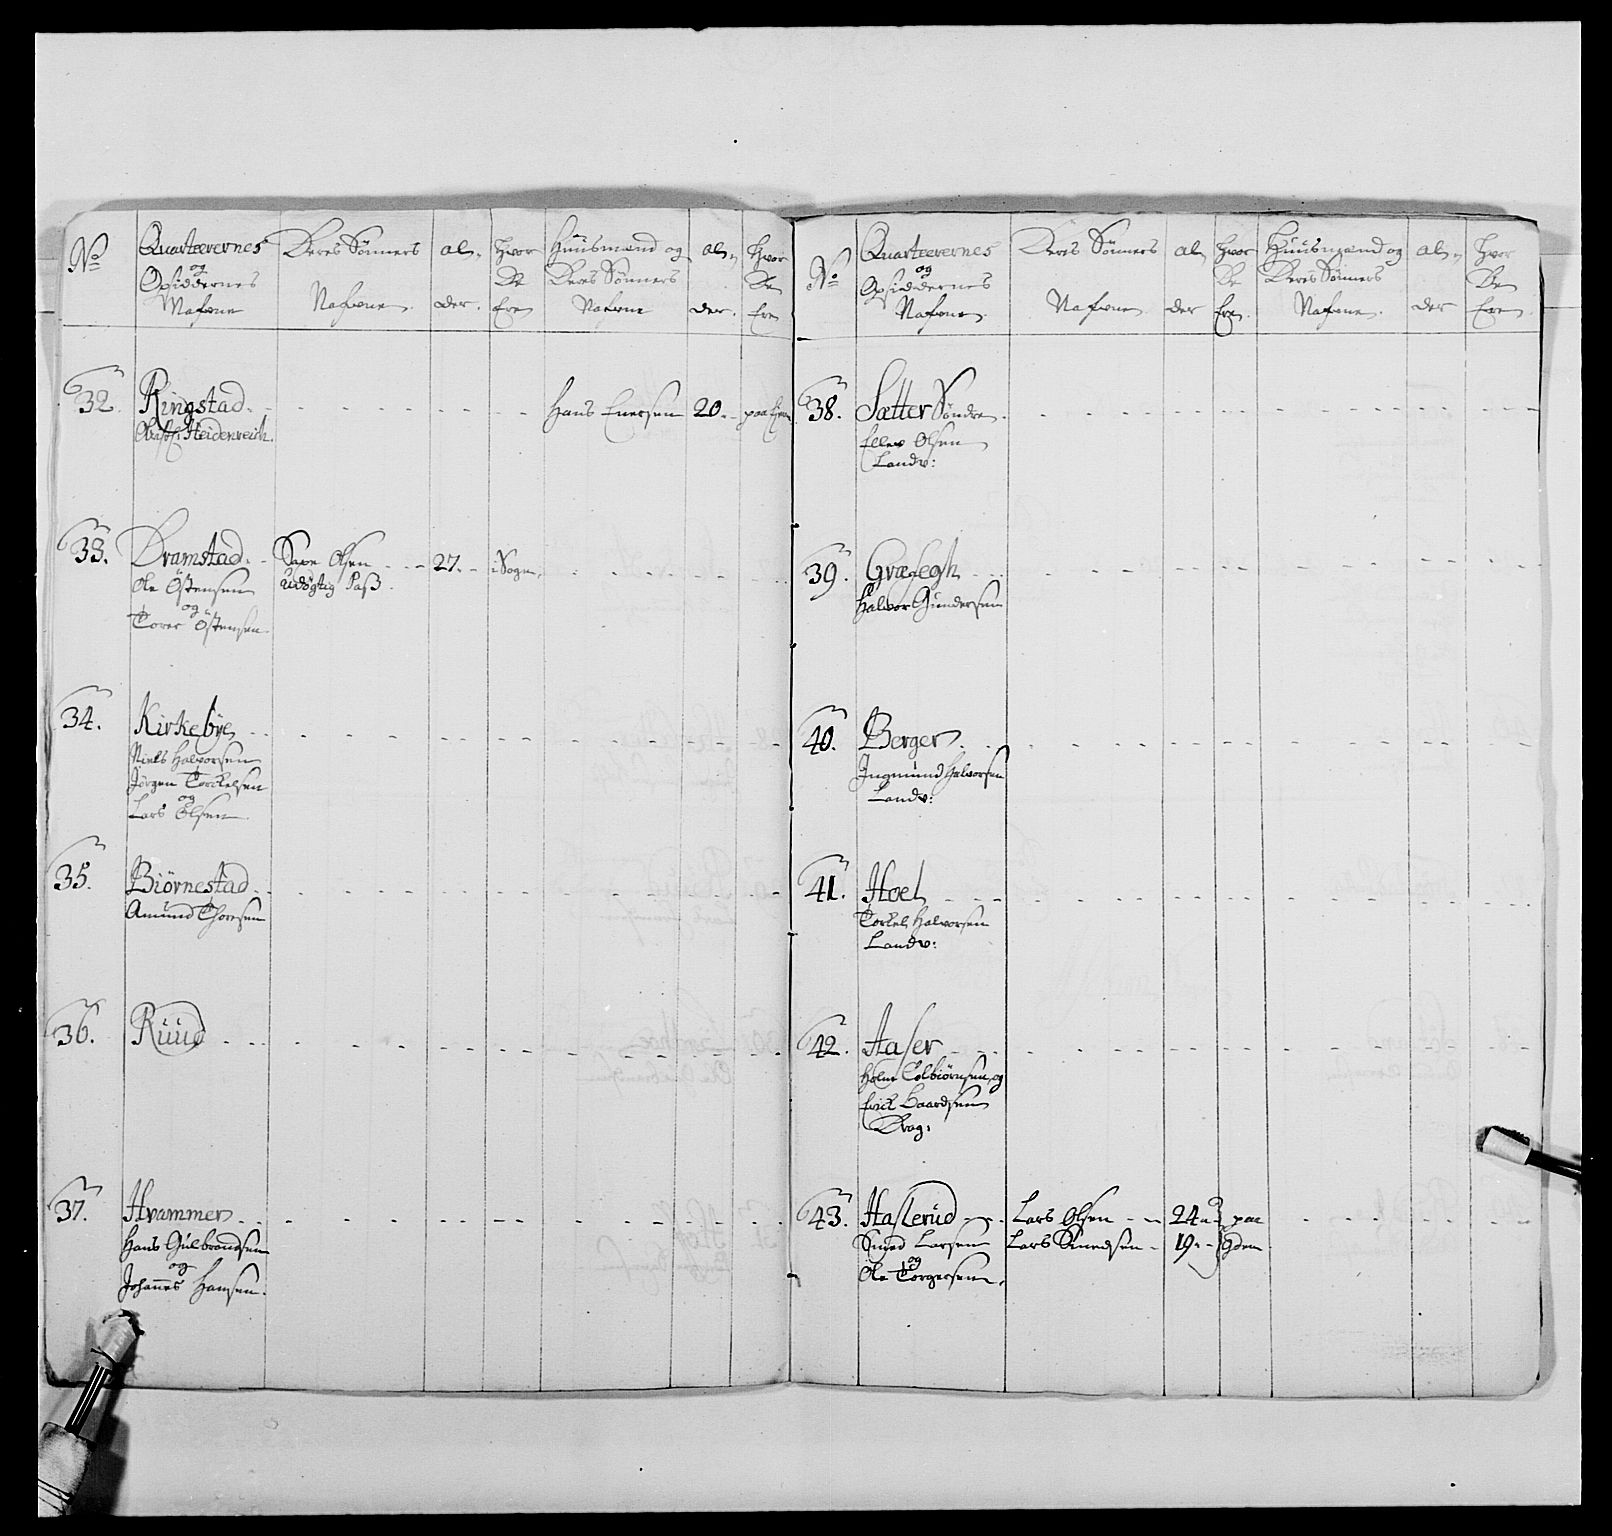 No
Quarteerernes
og
Opsiddernes
Nafvne
Deres Sønners
Nafvne.
al-
der.
hvor
De
Ere
Huusmænd og
Deres Sønners
Nafvne
al-
der.
hvor
De
Ere
32.
Ringstad.
Heidenreich.
Hans Enersen 20. paa
33.
Dramstad.
Ole Östensen
og
Torer Östensen
Saxe Olsen 27. i Sogn.
udögtig Pass.
34.
Kirkebye
Niels Halvorsen
Jörgen Torckelsen
og
Lars Olsen
35.
Biörnestad
Amund Thoresen
36.
Ruud
37.
Hvammer
Hans Gulbrandsen
og
Johannes Hansen.
No
Quarteerernes
og
Opsiddernes
Nafvne.
Deres Sønners
Nafvne
al-
der
hvor
De
Ere.
Huusmænd og
Deres Sønners
Nafvne.
al-
der
hvor
De
Ere.
38.
Sætter Söndre
Ellev Olsen
Landv:
39.
Græslegh
Halvor Gundersen
40.
Berger
Ingmund Halvorsen
Landv:
41.
Hoel
Torkel Halvorsen
Landv:
42.
Haser
Tolbiörnsen og
Erick Baardsen
Drag:
43.
Haslerud
Smed Larsen
og
Ole Torgersen.
Lars Olsen 24 paa
Lars Knudsen 19 gden